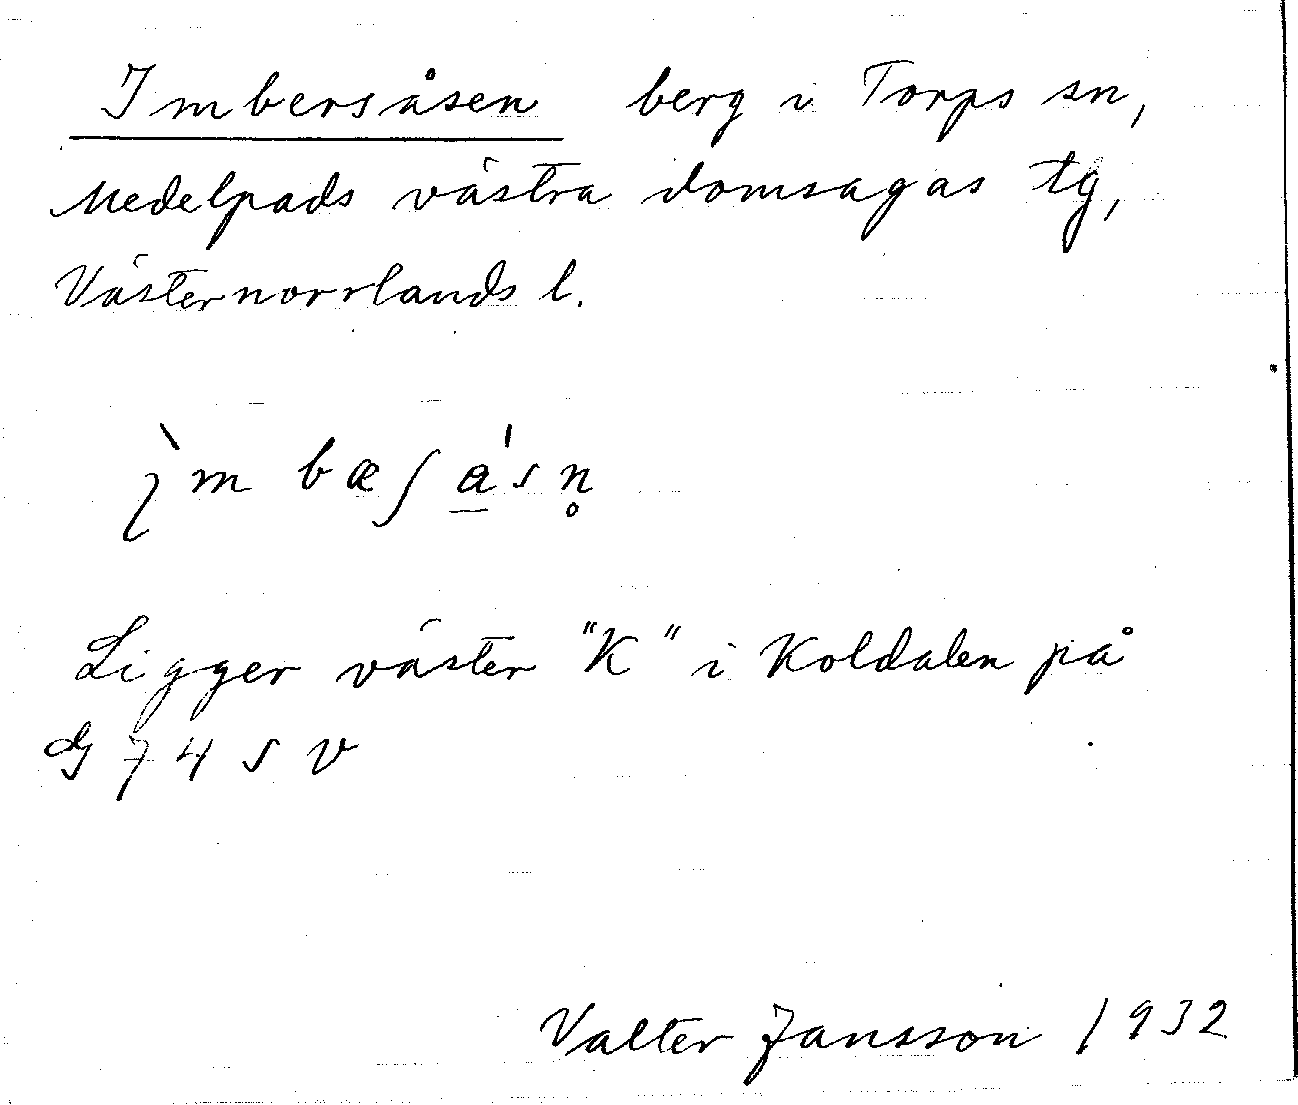 Imbersåsen berg i Torps sn,
Medelpads västra domsagas tg,
Västernorrlands l.
ı̀m bæʃ a̲ˈsn̥
Ligger väster "K" i Koldalen på
G 74 s v
Valter Jansson 1932